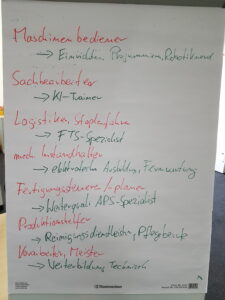 Maschinenbediener
→ Einrichten, Programmieren, Robotik
Sachbearbeiter
→ KI-Trainer
Logistiker, Staplerfahrer
→ FTS-Spezialist
mech. Instandhalter
→ elektrotechn. Ausbildung, Fernwartung
Fertigungssteuerer/-planer
→ Weiterquali APS-Spezialist
Produktionshelfer
→ Reinigungsdienstleister, Pflegeberufe
Vorarbeiter, Meister
→ Weiterbildung, Technisch